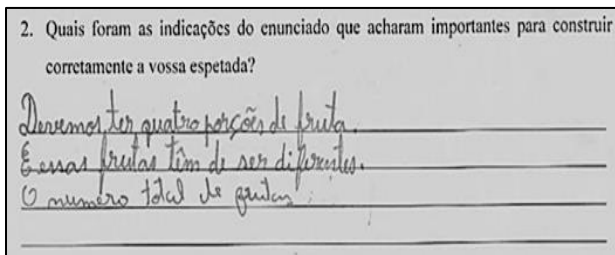 2. Quais foram as indicações do enunciado que acharam importantes para construir
corretamente a vossa espetada?
Devemos ter quatro porções de fruta.
E essas frutas têm de ser diferentes.
O numero total de frutas.